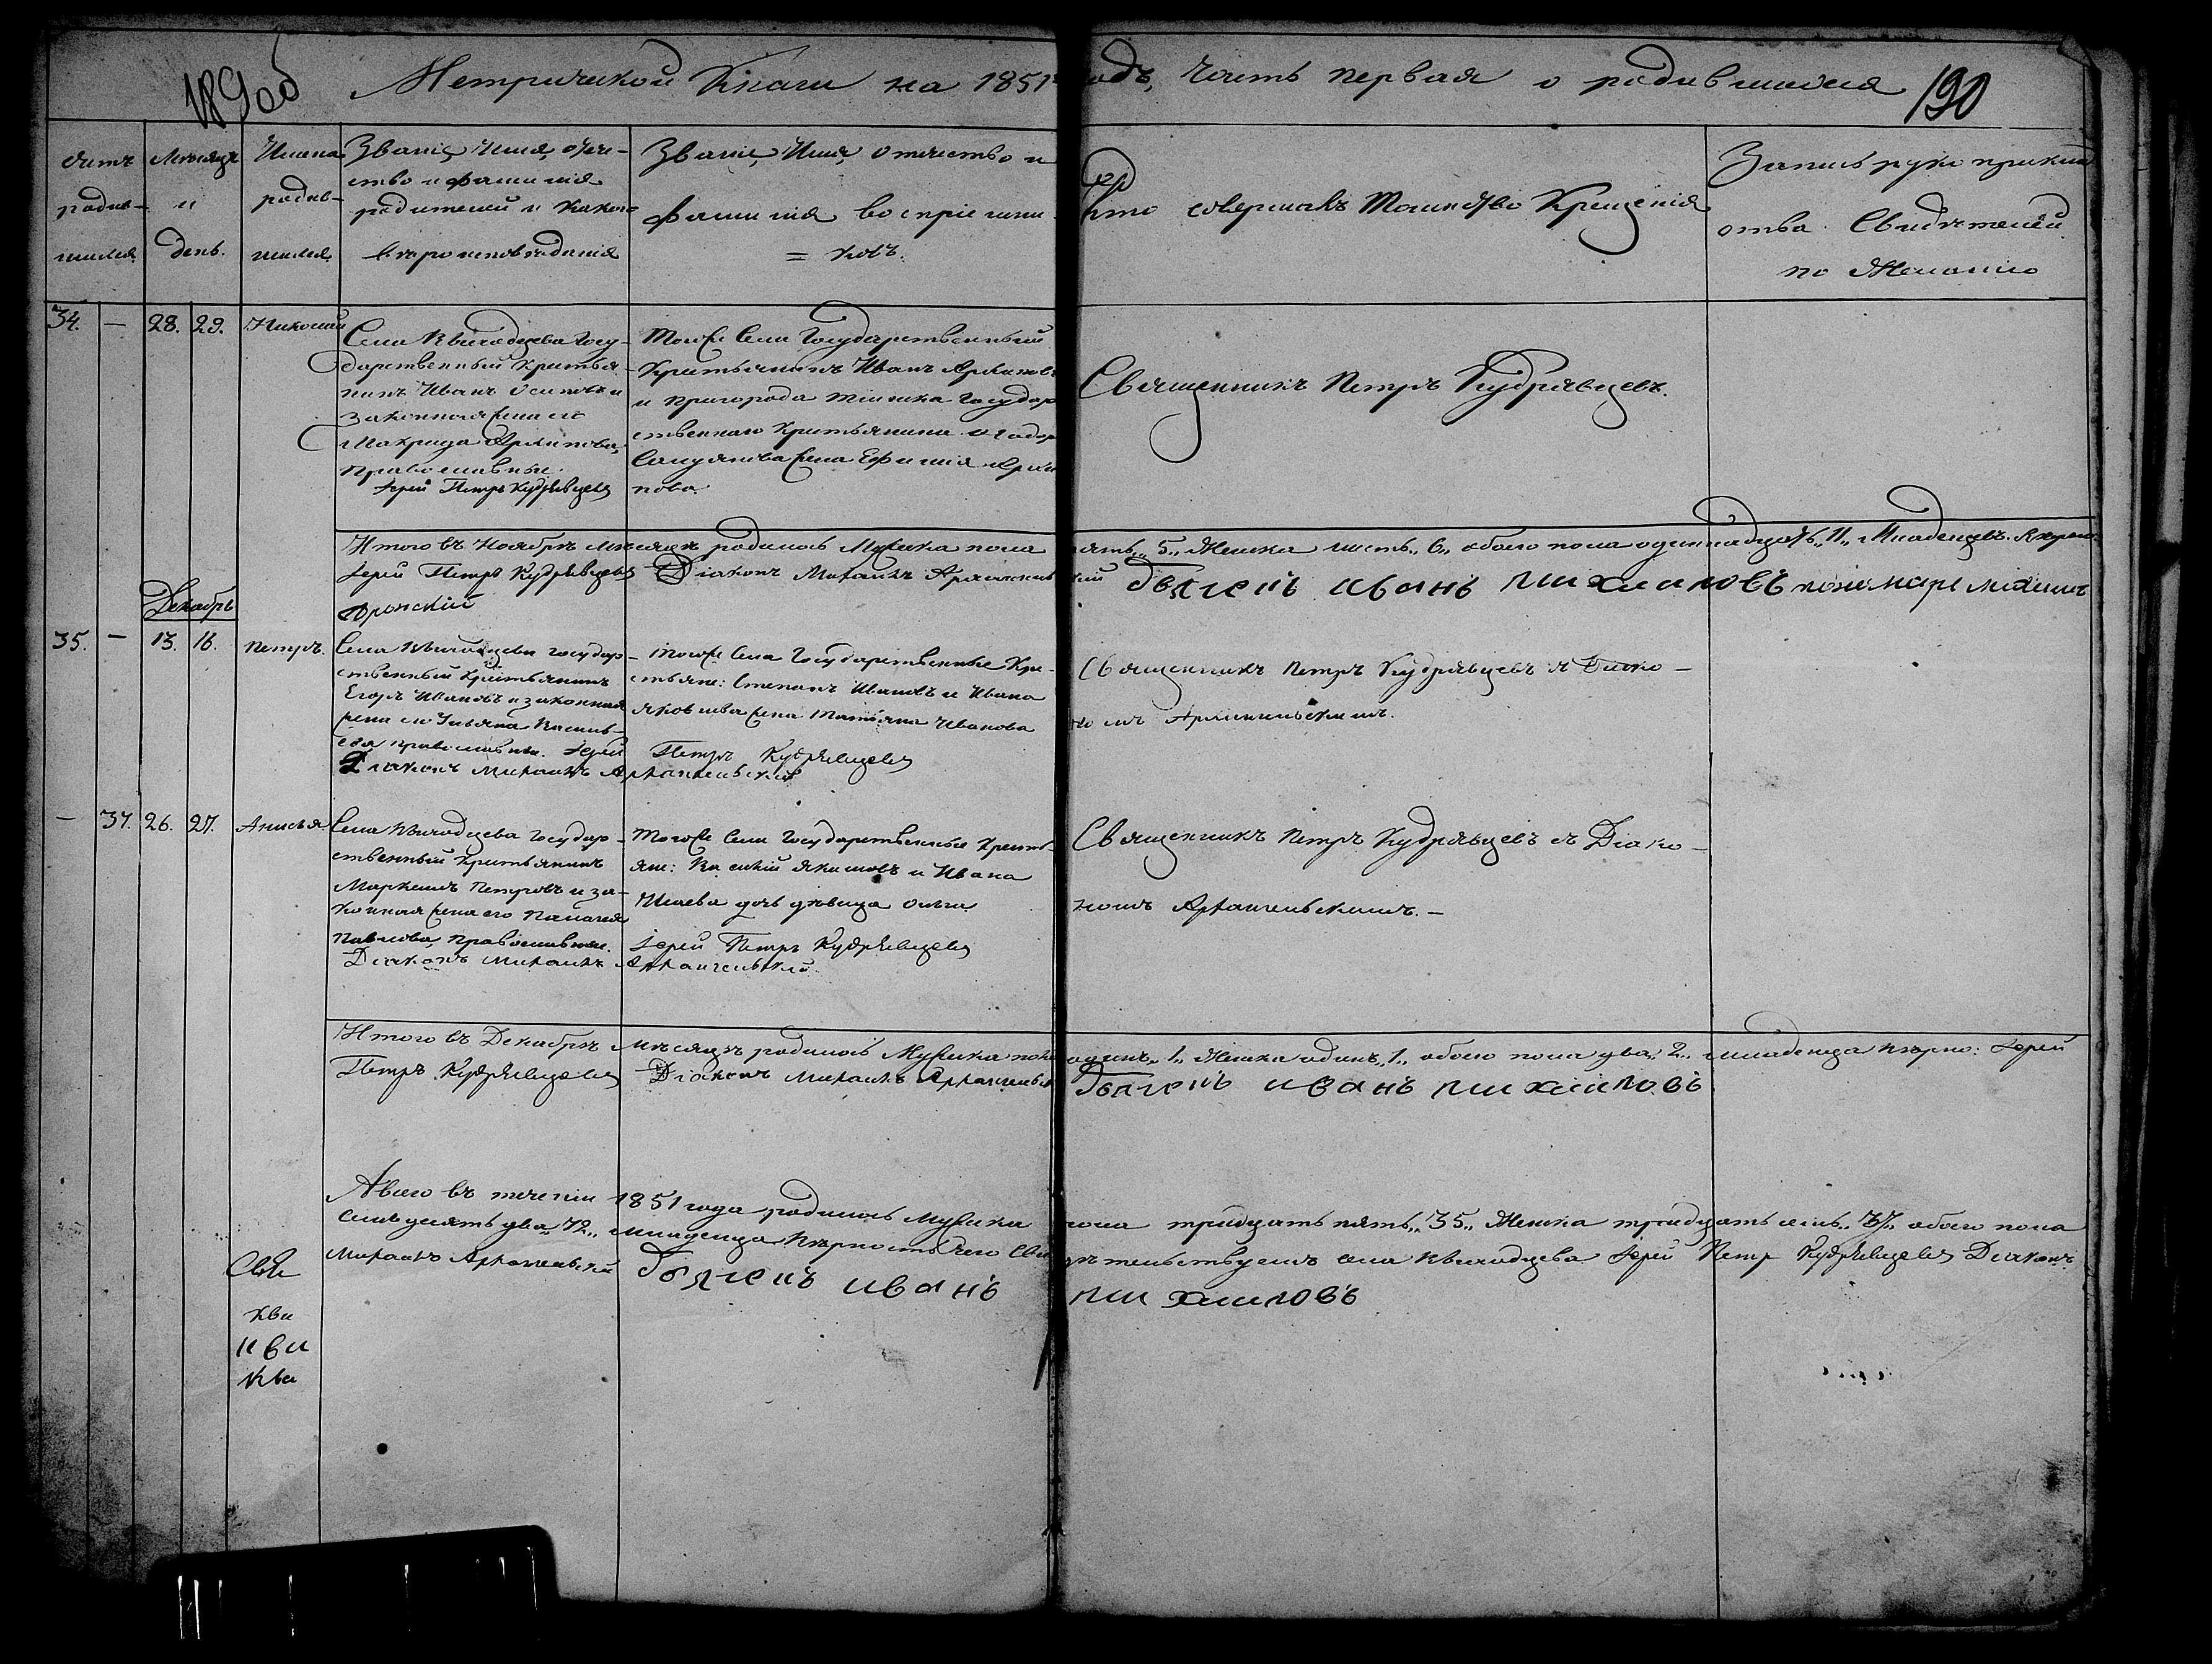 189об Метрической Книги на 1851й годъ, часть первая о родившихся 190
Счетъ родив-шихся.
Мѣсяцъ и день.
Имена родив-шихся.
Званіе, Имя, отече-
ство и фамилія
родителей и какого
вѣроисповѣданія
Званіе, Имя, отечество и
фамилія воспріемни-
= ковъ.
Кто совершалъ Таинство Крещенія
Запись рукоприклад
ства Свидѣтелей
по Желанію
34. — 28. 29. Николай
Села Квигодцева Госу-
дарственный Крестья-
нинъ Иванъ Осиповъ и
законная жена его
Макрида Архипова,
православные.
Іерей Петръ Кудрявцевъ
Тогоже Села Государственный
Крестьянинъ Иванъ Архиповъ
и пригорода Государ
ственнаго Крестьянина
жена Ефимія Архи
пова.
Священникъ Петръ Кудрявцевъ.
Итого въ Ноябрѣ мѣсяцѣ родилось Мужеска пола пять „5„ Женска шесть „6„ обоего пола одиннадцать „11„ Младенцевъ.
Іерей Петръ Кудрявцевъ Діаконъ Михаилъ Архангельскій дьячекъ иванъ михаиловъ пономарь
Декабрь
35. — 13. 16. Петръ.
Села государ-
ственный Крестьянинъ
Егоръ Ивановъ и законная
жена его Ульяна Василь-
ева православные. Іерей Петръ Кудрявцевъ
Діаконъ Михаилъ Архангельскій
Тогоже Села Государственные Кре-
стьяне: Степанъ Ивановъ и Ивана
Яковлева жена Татьяна Иванова
Священникъ Петръ Кудрявцевъ съ Діако-
номъ Архангельскимъ.
— 37. 26. 27. Анисья
Села государ-
ственный Крестьянинъ
Маркелъ Петровъ и за-
конная жена его Палагея
Павлова, православные.
Діаконъ Михаилъ Архангельскій
Тогоже Села Государственные Кресть-
яне: Василій Якимовъ и Ивана
дочь дѣвица Ольга
Іерей Петръ Кудрявцевъ
Священникъ Петръ Кудрявцевъ съ Діако-
номъ Архангельскимъ. —
Итого въ Декабрѣ мѣсяцѣ родилось Мужеска пола одинъ „1„ Женска одинъ „1„ обоего пола два „2„ младенца вѣрно: Іерей
Петръ Кудрявцевъ Діаконъ Михаилъ Архангельскій дьячекъ иванъ михаиловъ
А всего въ теченіи 1851 года родилось Мужеска пола тридцать пять „35„ Женска тридцать семь „37„ обоего пола
семьдесятъ два „72„ младенца вѣрность чего свидѣтельствуемъ села Іерей Петръ Кудрявцевъ Діаконъ
Михаилъ Архангельскій дьячекъ иванъ михаиловъ